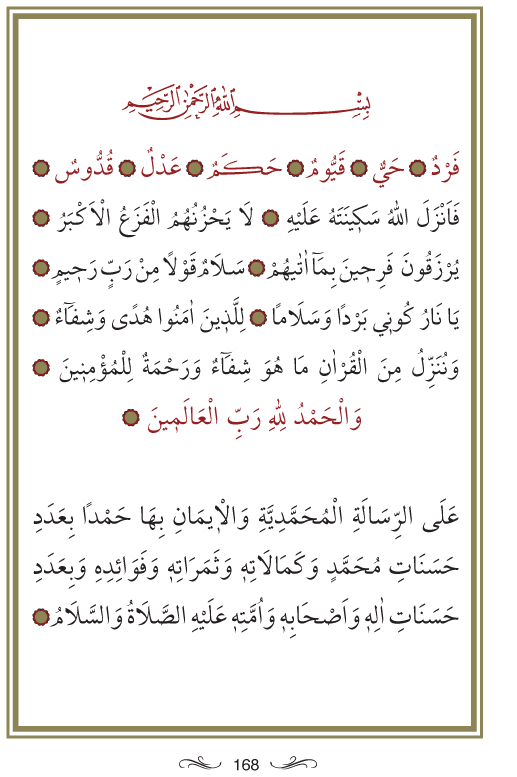 بِسْمِ اللّٰهِ الرَّحْمٰنِ الرَّحِيمِ
فَرْدٌ ۞ حَيٌّ ۞ قَيُّومٌ ۞ حَكَمٌ ۞ عَدْلٌ ۞ قُدُّوسٌ ۞
فَاَنْزَلَ اللّٰهُ سَكٖينَتَهُ عَلَيْهِ ۞ لَا يَحْزُنُهُمُ الْفَزَعُ الْاَكْبَرُ ۞
يُرْزَقُونَ فَرِحٖينَ بِمَٓا اٰتٰيهُمْ ۞ سَلَامٌ قَوْلًا مِنْ رَبٍّ رَحٖيمٍ ۞
يَا نَارُ كُونٖي بَرْدًا وَسَلَامًا ۞ لِلَّذٖينَ اٰمَنُوا هُدًى وَشِفَٓاءٌ ۞
وَنُنَزِّلُ مِنَ الْقُرْاٰنِ مَا هُوَ شِفَٓاءٌ وَرَحْمَةٌ لِلْمُؤْمِنٖينَ ۞
وَالْحَمْدُ لِلّٰهِ رَبِّ الْعَالَمٖينَ ۞
عَلَى الرِّسَالَةِ الْمُحَمَّدِيَّةِ وَالْاٖيمَانِ بِهَا حَمْدًا بِعَدَدِ
حَسَنَاتِ مُحَمَّدٍ وَكَمَالَاتِهٖ وَثَمَرَاتِهٖ وَفَوَائِدِهٖ وَبِعَدَدِ
حَسَنَاتِ اٰلِهٖ وَاَصْحَابِهٖ وَاُمَّتِهٖ عَلَيْهِ الصَّلَاةُ وَالسَّلَامُ ۞
168